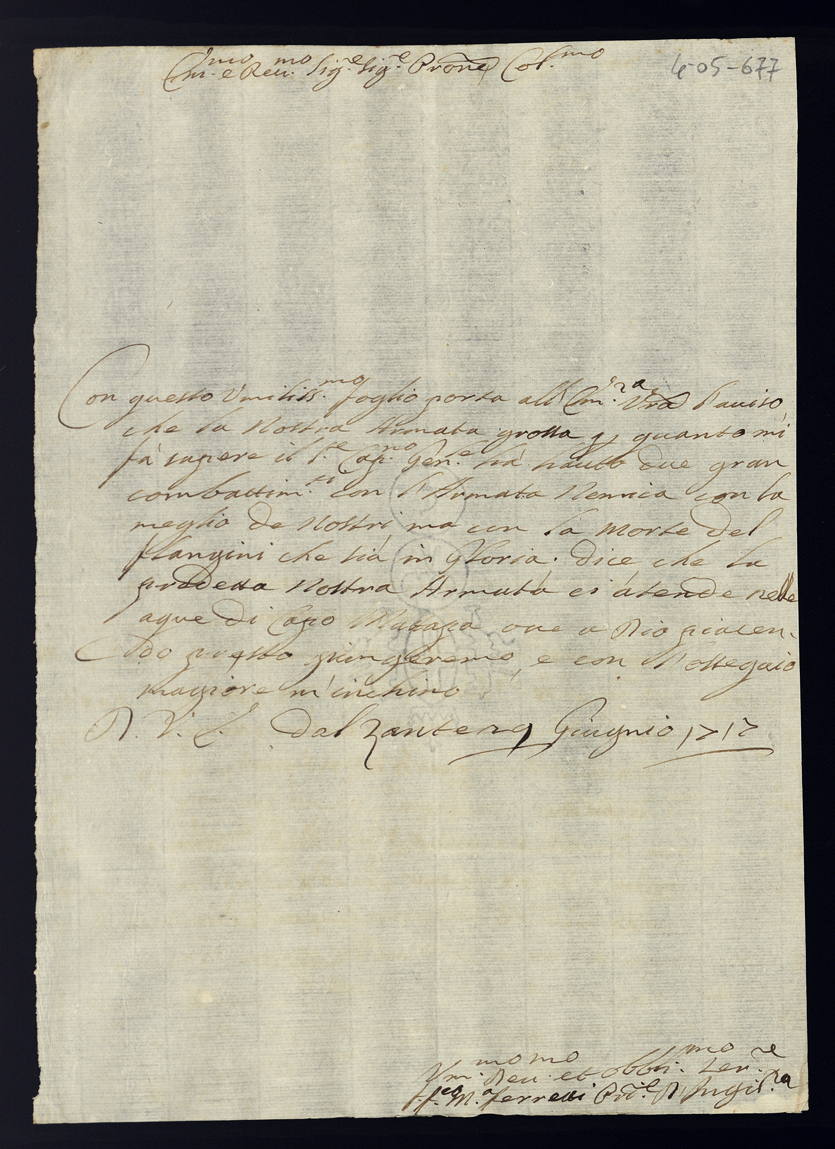 Em.mo e Reu.mo Sig.e Sig.e Prone Col.mo
4-05-677
Con questo Vmiliss.mo foglio porta all Em.za Vra l'auiso
che la Nostra Armata grossa p quanto mi
fà sapere il Cap.no Gen.e hà hauto due gran
combattim.ti con l'Armata Nemica con la
meglio de Nostri ma con la Morte del
Flangini che sia in Gloria. dice che la
predetta Nostra Armata ci atende nelle
aque di Capo Matapa oue a Dio piacen-
do presto giungeremo, e con l'ossequio
magiore m'inchino
D. V. E. Dal Zante 29 Giugnio 1717
Vm.mo Deu.mo et obbli.mo Ser.re
M.a Ferretti